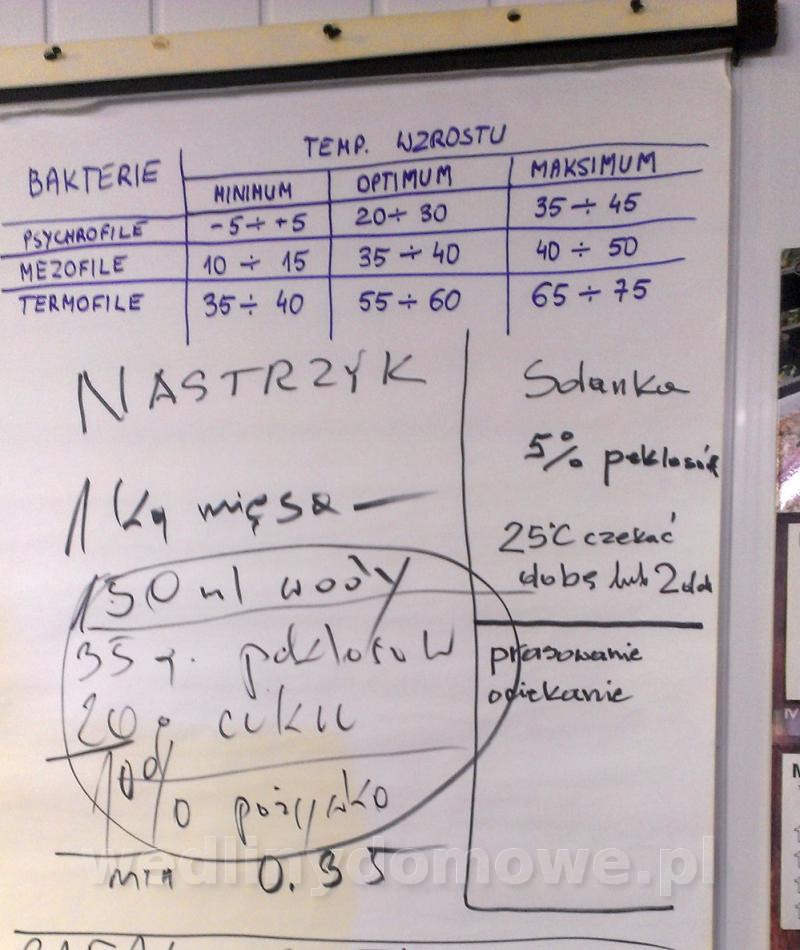 TEMP. WZROSTU
BAKTERIE
MINIMUM OPTIMUM MAKSIMUM
PSYCHROFILE -5 ÷ +5 20 ÷ 30 35 ÷ 45
MEZOFILE 10 ÷ 15 35 ÷ 40 40 ÷ 50
TERMOFILE 35 ÷ 40 55 ÷ 60 65 ÷ 75
NASTRZYK
1 kg mięsa —
150 ml wody
35 g. peklosów
20 g cukru
10% pożywko
min 0.35
Solanka
5% peklosól
25°C czekać
dobę lub 2
prasowanie
ociekanie
wedlinydomowe.pl